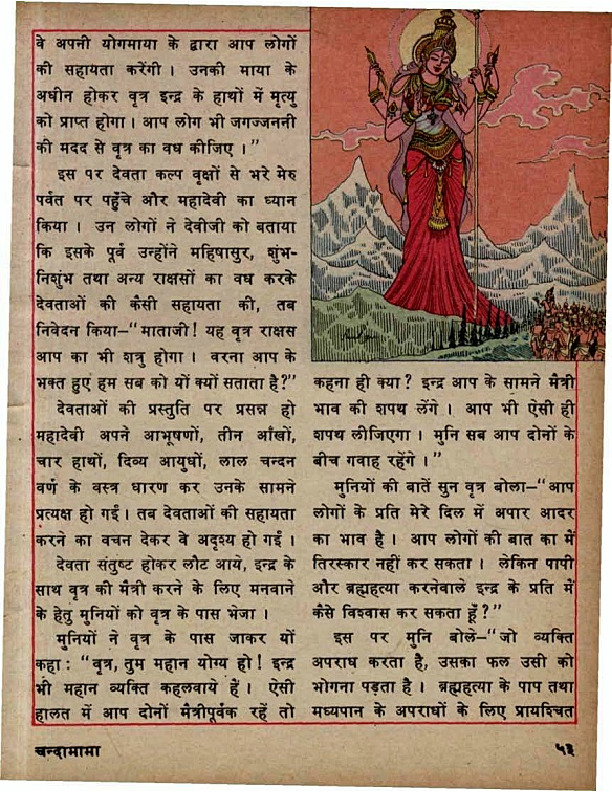 वे अपनी योगमाया के द्वारा आप लोगों
की सहायता करेंगी । उनकी माया के
अधीन होकर वृत्र इन्द्र के हाथों में मृत्यु
को प्राप्त होगा । आप लोग भी जगज्जननी
की मदद से वृत्र का वध कीजिए ।”
इस पर देवता कल्प वृक्षों से भरे मेरु
पर्वत पर पहुँचे और महादेवी का ध्यान
किया । उन लोगों ने देवीजी को बताया
कि इसके पूर्व उन्होंने महिषासुर, शुंभ-
निशुंभ तथा अन्य राक्षसों का वध करके
देवताओं की कैसी सहायता की, तब
निवेदन किया–“माताजी! यह वृत्र राक्षस
आप का भी शत्रु होगा । वरना आप के
भक्त हुए हम सब को यों क्यों सताता है?”
देवताओं की प्रस्तुति पर प्रसन्न हो
महादेवी अपने आभूषणों, तीन आँखों,
चार हाथों, दिव्य आयुधों, लाल चन्दन
वर्ण के वस्त्र धारण कर उनके सामने
प्रत्यक्ष हो गई । तब देवताओं की सहायता
करने का वचन देकर वे अदृश्य हो गईं ।
देवता संतुष्ट होकर लौट आये, इन्द्र के
साथ वृत्र की मैत्री करने के लिए मनवाने
के हेतु मुनियों को वृत्र के पास भेजा ।
मुनियों ने वृत्र के पास जाकर यों
कहा : “वृत्र, तुम महान योग्य हो! इन्द्र
भी महान व्यक्ति कहलवाये हैं । ऐसी
हालत में आप दोनों मैत्रीपूर्वक रहें तो
कहना ही क्या? इन्द्र आप के सामने मैत्री
भाव की शपथ लेंगे । आप भी ऐसी ही
शपथ लीजिएगा । मुनि सब आप दोनों के
बीच गवाह रहेंगे ।”
मुनियों की बातें सुन वृत्र बोला–“आप
लोगों के प्रति मेरे दिल में अपार आदर
का भाव है । आप लोगों की बात का मैं
तिरस्कार नहीं कर सकता । लेकिन पापी
और ब्रह्महत्या करनेवाले इन्द्र के प्रति मैं
कैसे विश्वास कर सकता हूँ?”
इस पर मुनि बोले–“जो व्यक्ति
अपराध करता है, उसका फल उसी को
भोगना पड़ता है । ब्रह्महत्या के पाप तथा
मध्यपान के अपराधों के लिए प्रायश्चित
चन्दामामा
५३